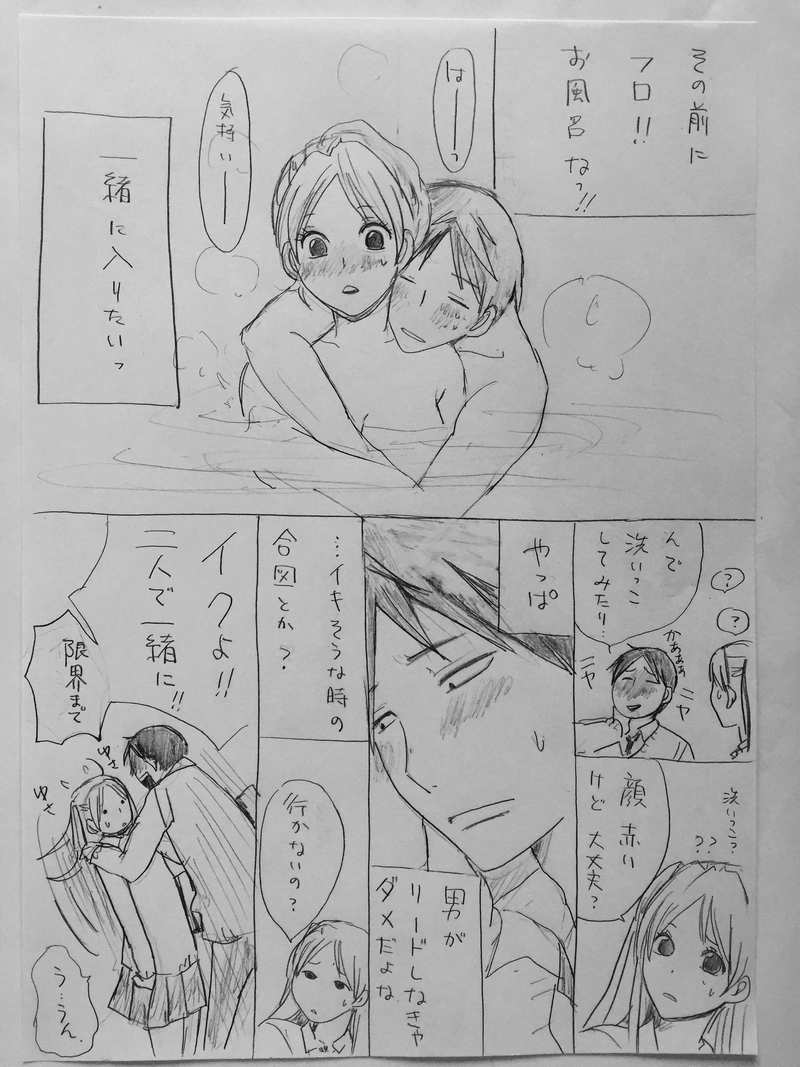 その前に
フロ!!
お風呂なっ!!
はーーっ
気持いーー
一緒に入りたいっ
んで
洗いっこ
してみたり…
?
?
かあぁぁ
ニヤ
ニヤ
洗いっこ?
??
顔 赤い
けど 大丈夫?
やっぱ
男が
リードしなきゃ
ダメだよな
…イキそうな時の
合図とか?
行かないの?
イクよ!!
二人で一緒に!!
限界まで
ゆさ
ゆさ
う…うん